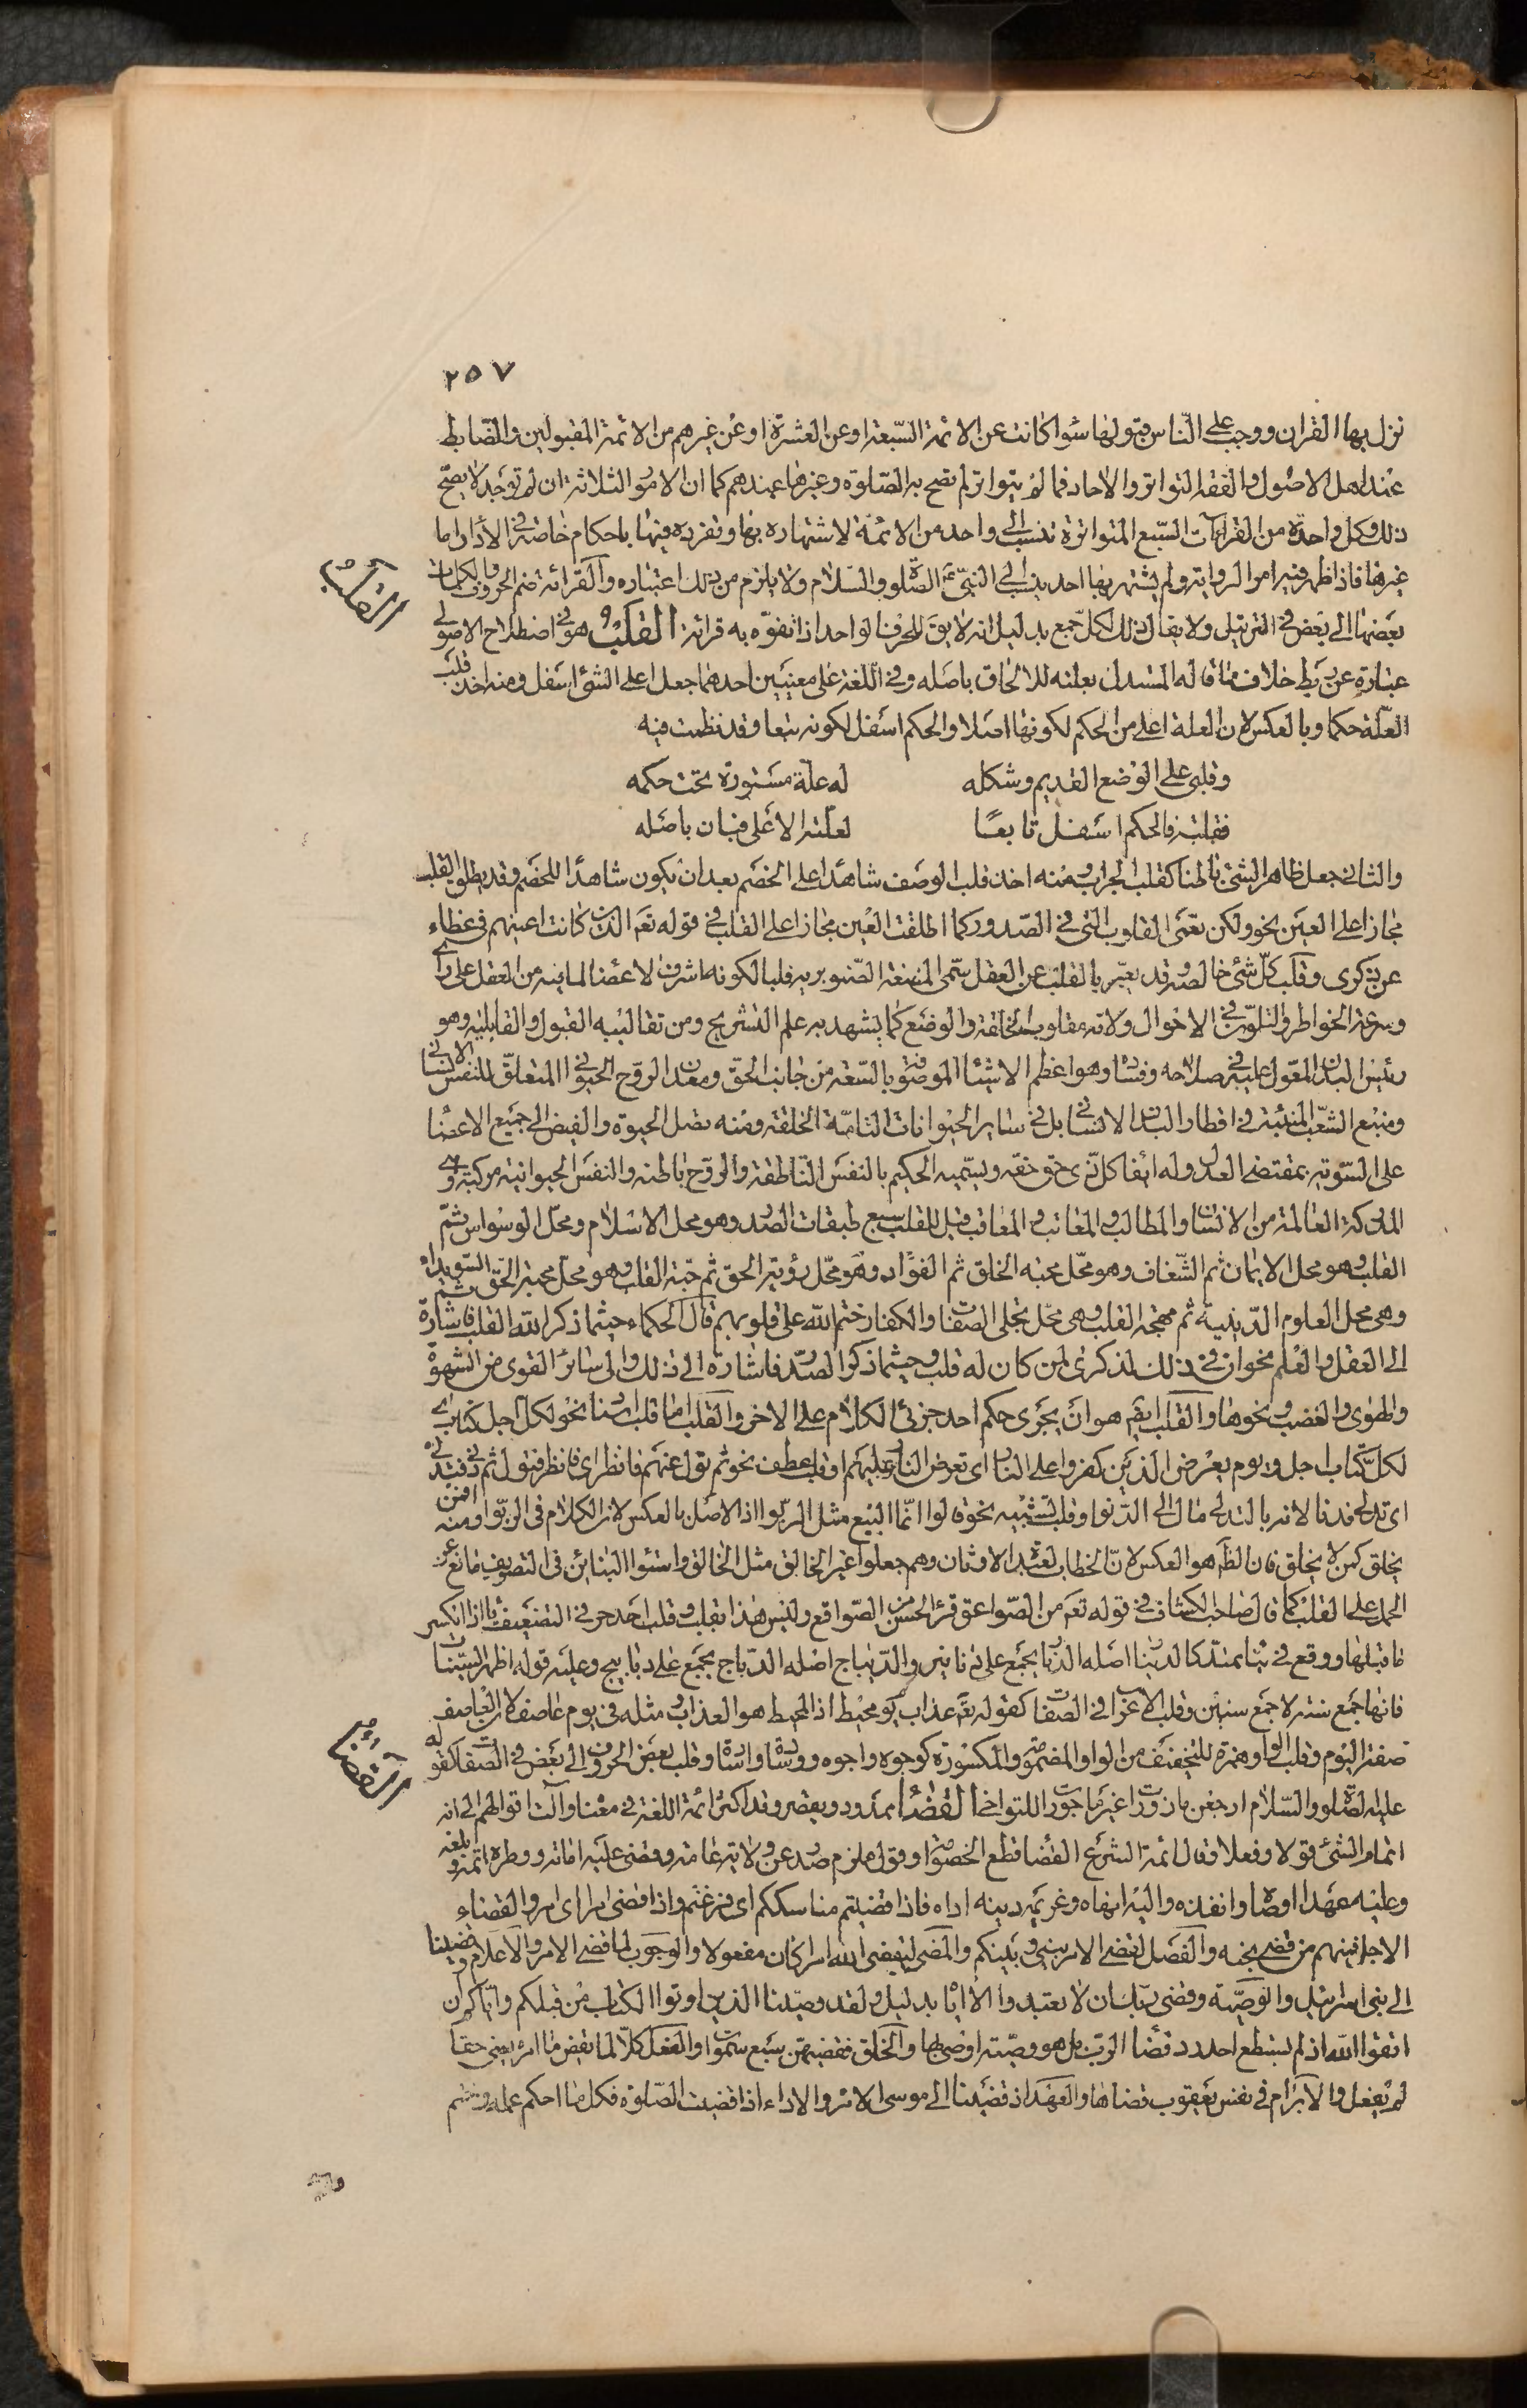 ٢٥٧
نزل بها القران ووجب على الناس قبولها سوا كانت عن الائمة السبعة او عن العشرة او عن غيرهم من الائمة المقبولين والضابط
عند اهل الاصول والفقه التواتر والاحاد فما لم يتواتر لم تصح به الصلوة وغيرها عندهم كما ان الامور الثلاثة ان لم توجد لا يصح
ذلك وكل واحدة من القراآت السبع المتواترة تنسب الى واحد من الائمة لاشتهاره بها وتفرده فيها باحكام خاصة في الأداء واما
غيرها فاذا ظهر فيه امر الرواية ولم يشتهر بها احد ينسب الى النبي عليه الصلوة والسلام ولا يلزم من ذلك اعتباره والقرائة ضم الحروف والكلمات
بعضها الى بعض في الترتيل ولا يقال ذلك لكل جمع بدليل انه لا يقال للحرف الواحد اذا تفوه به قرائة القلب هو في اصطلاح الاصولى
عبارة عن ربط خلاف ما قاله المستدل بعلته للالحاق باصله وفي اللغة على معنيين احدهما جعل اعلى الشئ اسفل ومنه اخذ قلب
العلة حكما وبالعكس لان العلة اعلى من الحكم لكونها اصلا والحكم اسفل لكونه تبعا وقد نظمت فيه
وقلبى على الوضع القديم وشكله    له علة مستورة تحت حكمه
فقلبته فالحكم اسفل تابعًا    لعلته الاعلى فبان باصله
والثانى جعل ظاهر الشئ باطنا كقلب الجراب ومنه اخذ قلب الوصف شاهدا على الخصم بعد ان يكون شاهدا للخصم وقد يطلق القلب
مجازا على العين نحو ولكن تعمى القلوب التى في الصدور كما اطلقت العين مجازا على القلب في قوله تعم الذين كانت اعينهم فى غطاء
عن ذكرى وقلب كل شئ خالصه وقد يعبر بالقلب عن العقل سمى المضغة الصنوبرية قلبا لكونه اشرف الاعضا لما فيه من العقل على رأى
وسرعة الخواطر والتلون في الاحوال ولانه مقلوب الخلقة والوضع كما يشهد به علم التشريح ومن تقاليبه القبول والقابلية وهو
رئيس البدن المعول عليه في صلاحه وفساده وهو اعظم الاشيئا الموصوفة بالسعة من جانب الحق ومعدن الروح الحيوانى المتعلق للنفس الانسانى
ومنبع الشعب المنبثة في اقطار البدن الانسانى بل في ساير الحيوانات التامة الخلقة ومنه تصل الحيوة والفيض الى جميع الاعضا
على السوية بمقتضى العدل وله ايفا كل ذى حق حقه ويسميه الحكيم بالنفس الناطقة والروح باطنه والنفس الحيوانية مركبة وهى
المدركة العالمة من الانسان والمطالب والمعاتب والمعاقب قيل للقلب سبع طبقات الصدر وهو محل الاسلام ومحل الوسواس ثم
القلب وهو محل الايمان ثم الشغاف وهو محل محبة الخلق ثم الفؤاد وهو محل رؤية الحق ثم حبة القلب وهو محل محبة الحق ثم السويداء
وهى محل العلوم الدينية ثم مهجة القلب وهى محل تجلى الصفات والكفار ختم الله على قلوبهم قال الحكماء حيثما ذكر الله القلب فاشارة
الى العقل والعلم نحو ان في ذلك لذكرى لمن كان له قلب وحيثما ذكر الصدر فاشارة الى ذلك والى سائر القوى من الشهوة
والهوى والغضب ونحوها والقلب ايضا هو ان يجرى حكم احد جزئى الكلام على الاخر والقلب اما قلب اسناد نحو لكل اجل كتاب اى
لكل كتاب اجل ويوم يعرض الذين كفروا على النار اى تعرض النار عليهم او قلب عطف نحو ثم تول عنهم فانظر اى فانظر فتول ثم دنى فتدلى
اى تدلى فدنا لانه بالتدلى مال الى الدنو او قلب تشبيه نحو قالوا انما البيع مثل الربوا اذ الاصل بالعكس لان الكلام فى الربوا ومنه افمن
يخلق كمن لا يخلق فان الظاهر هو العكس لان الخطاب لعبدة الاوثان وهم جعلوا غير الخالق مثل الخالق واستوا البنائين فى التصريف مانع عن
الحمل على القلب كما قال صاحب الكشاف في قوله تعم من الصواعق قرئ الحسن من الصواقع وليس هذا بقلب وقلب احد حرفى التضعيف ياء اذا انكسر
ما قبلها ووقع في بناء ممتد كالدينار اصله الدنار يجمع على دنانير والديباج اصله الدباج يجمع على دبابيج وعليه قوله اظهر السينات
فانها جمع سنة لا جمع سنين وقلب الاعراب في الصفات كقوله تعم عذاب يوم محيط اذ المحيط هو العذاب ومثله فى يوم عاصف لان العاصف
صفة اليوم وقلب الواو همزة للتخفيف من الواو المضمومة والمكسورة كوجوه واجوه ووشاح واشاح وقلب بعض الحروف الى بعض في الصفة كقوله
عليه الصلوة والسلام ارجعن مازورات غير ماجورات للتواخى القضاء ممدود ويقصر وقد اكثر ائمة اللغة في معناه وآلت اقوالهم الى انه
اتمام الشئ قولا وفعلا وقال ائمة الشرع القضا قطع الخصومة او قول ملزم صدر عن ولاية عامة وقضى عليه اماته ووطره اتمه وبلغه
وعليه عهدا اوصاه وانفذه واليه انهاه وغريمه دينه اداه فاذا قضيتم مناسككم اى فرغتم واذا قضى امرا اى امر والقضاء
الاجل فمنهم من قضى نحبه والفصل لقضى الامر بينى وبينكم والمضى ليقضى الله امرا كان مفعولا والوجوب لما قضى الامر والاعلام وقضينا
الى بنى اسرائيل والوصية وقضى ربك ان لا تعبدوا الا اياه بدليل ولقد وصينا الذين اوتوا الكتاب من قبلكم واياكم ان
اتقوا الله اذ لم يستطع احد رد قضا الرب بل هو وصية اوصى بها والخلق فقضيهن سبع سموات والفعل كلا لما يقض ما امره يعنى حقا
لم يفعل والابرام فى نفس يعقوب قضاها والعهد اذ قضينا الى موسى الامر والاداء اذا قضيت الصلوة فكل ما احكم عمله وختم
القلب
القضاء